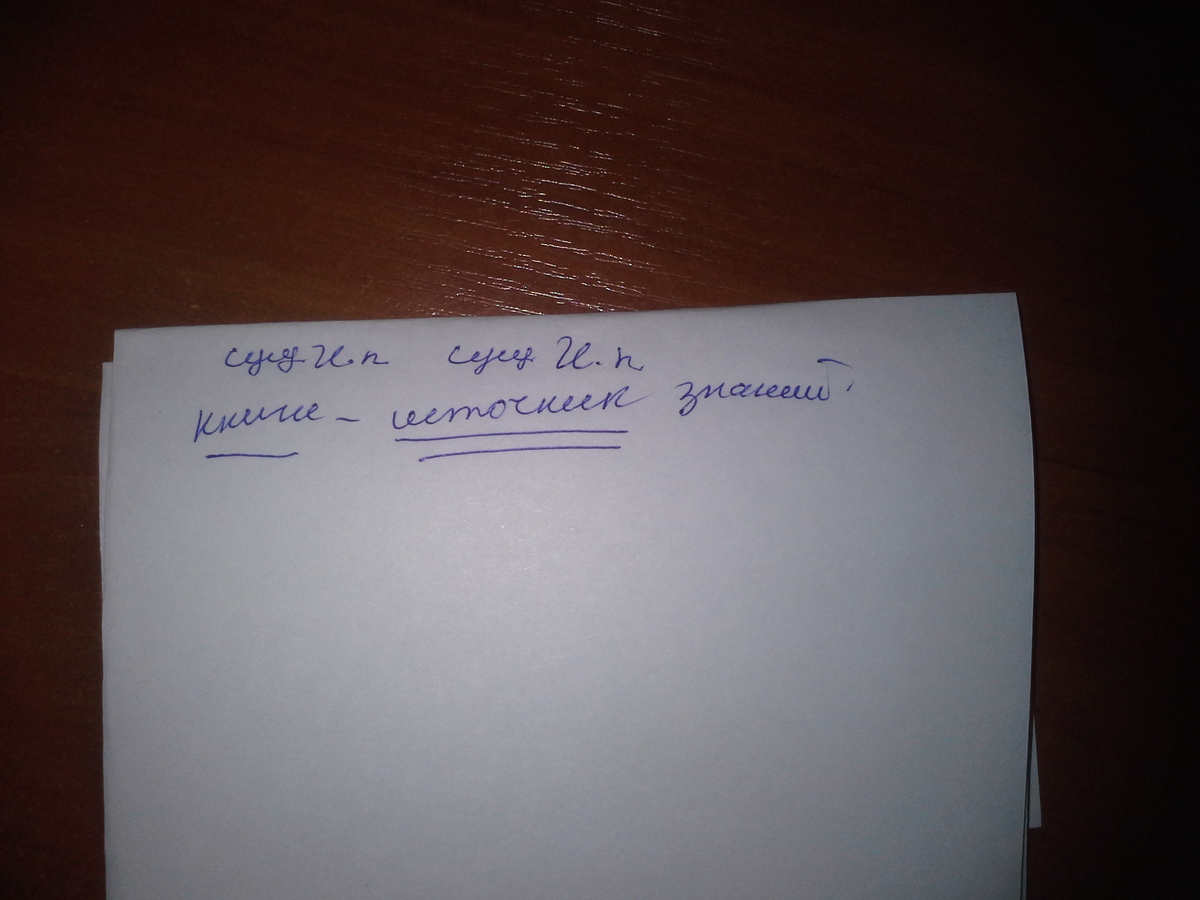 сущ И.п сущ И.п
книга – источник знаний.